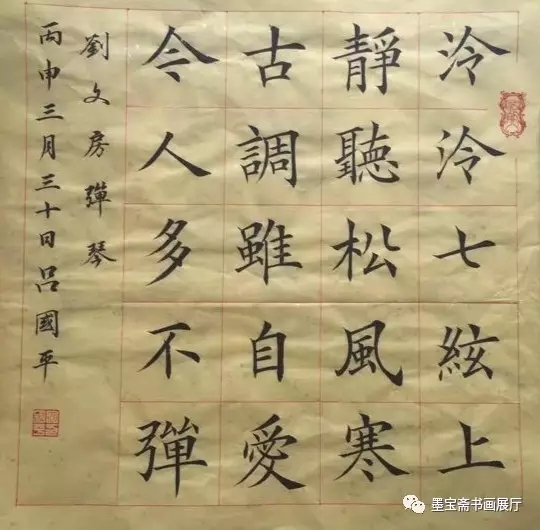 泠泠七絃上
靜聽松風寒
古調雖自愛
今人多不彈
劉文房彈琴
丙申三月三十日呂國平
墨宝斋书画展厅